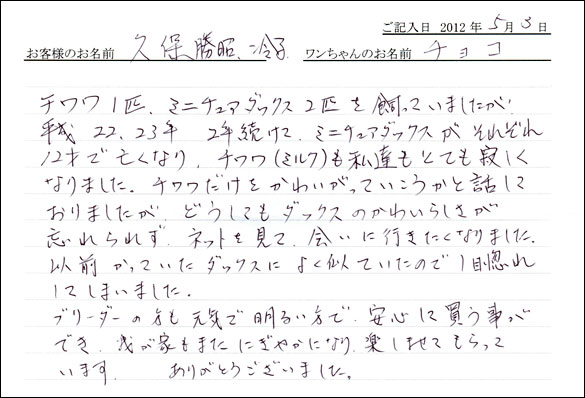 ご記入日 2012年5月3日
お客様のお名前 久保勝昭、冷子 ワンちゃんのお名前 チョコ
チワワ1匹、ミニチュアダックス2匹を飼っていましたが
平成22、23年 2年続けて、ミニチュアダックスがそれぞれ
12才で亡くなり、チワワ(ミルク)も私達もとても寂しく
なりました。チワワだけをかわいがっていこうかと話して
おりましたが、どうしてもダックスのかわいらしさが
忘れられず、ネットを見て、会いに行きたくなりました。
以前かっていたダックスによく似ていたので1目惚れ
してしまいました。
ブリーダーの方も元気で明るい方で、安心して買う事が
でき、我が家もまたにぎやかになり、楽しませてもらって
います。 ありがとうございました。